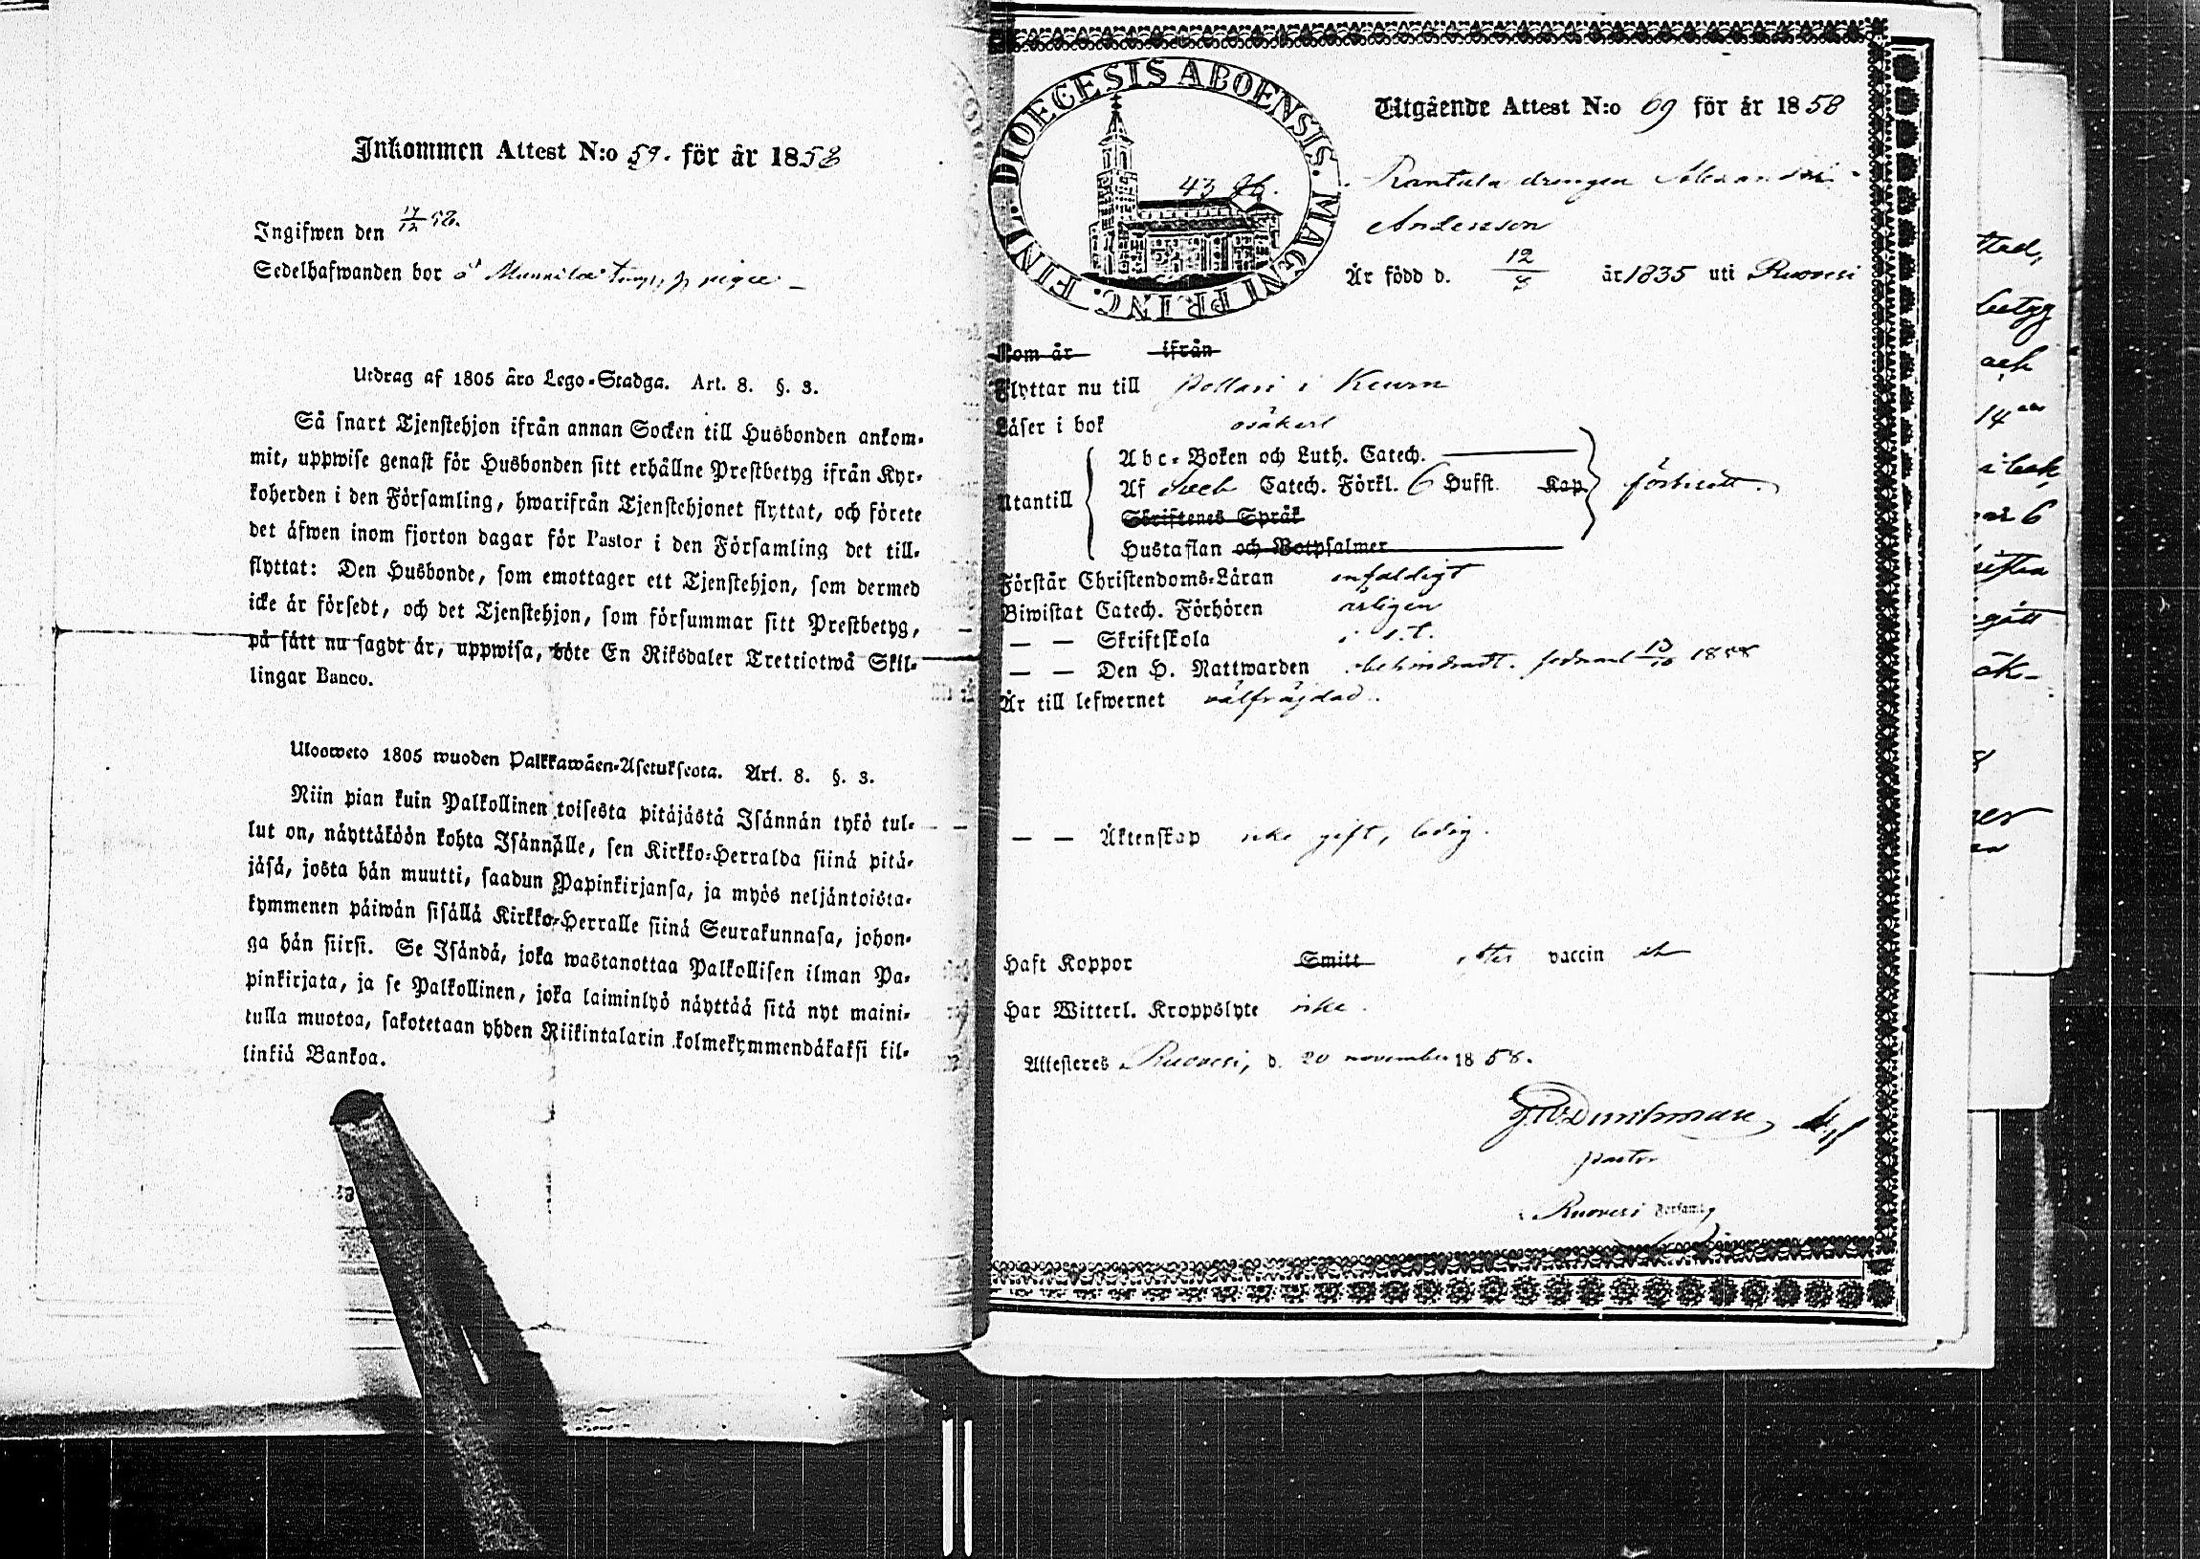 Inkommen Attest N:o 59. för år 1858
Ingifwen den 17/12 58.
Sedelhafwanden bor å Munnila
Utdrag af 1805 års Lego-Stadga. Art. 8. §. 3.
Så snart Tjenstehjon ifrån annan Socken till Husbonden ankom-
mit, uppwise genast för Husbonden sitt erhållne Prestbetyg ifrån Kyr-
koherden i den Församling, hwarifrån Tjenstehjonet flyttat, och förete
det äfwen inom fjorton dagar för Pastor i den Församling det till-
flyttat: Den Husbonde, som emottager ett Tjenstehjon, som dermed
icke är försedt, och det Tjenstehjon, som försummar sitt Prestbetyg,
på sätt nu sagdt är, uppwisa, böte En Riksdaler Trettiotwå Skil-
lingar Banco.
Ulosweto 1805 wuoden Palkkawäen-Asetuksesta. Art. 8. §. 3.
Niin pian kuin Palkollinen toisesta pitäjästä Isännän tykö tul-
lut on, näyttäköön kohta Isännälle, sen Kirkko-Herralda siinä pitä-
jäsä, josta hän muutti, saadun Papinkirjansa, ja myös neljäntoista-
kymmenen päiwän sisällä Kirkko-Herralle siinä Seurakunnasa, johon-
ga hän siirsi. Se Isändä, joka wastanottaa Palkollisen ilman Pa-
pinkirjata, ja se Palkollinen, joka laiminlyö näyttää sitä nyt maini-
tulla muotoa, sakotetaan yhden Riikintalarin kolmekymmendäkaksi kil-
linkiä Bankoa.
DIOECESIS ABOENSIS. MAGNI PRINC. FINL.
43
Utgående Attest N:o 69 för år 1858
Rantala drengen Alexander
Andersson
Är född d. 12/4 år 1835 uti Ruovesi
Kom år ifrån
Flyttar nu till Pollari i Keuru
Läser i bok osäkert
Abc-Boken och Luth. Catech.
Utantill Af Sveb Catech. Förkl. 6 Hufst. Kap försvarl.
Skriftenes Språk
Hustaflan och Botpsalmer
Förstår Christendoms-Läran enfaldigt
Biwistat Catech. Förhören årligen
— — Skriftskola i s. t.
— — Den H. Nattwarden obehindradt. sednast 13/10 1858
Är till lefwernet välfrägdad.
— — Äktenskap icke gift, ledig.
Haft Koppor Smitt eller vaccin ja
Har Witterl. Kroppslyte icke.
Attesteres Ruovesi, d. 20 november 1858.
pastor
Ruovesi Församl